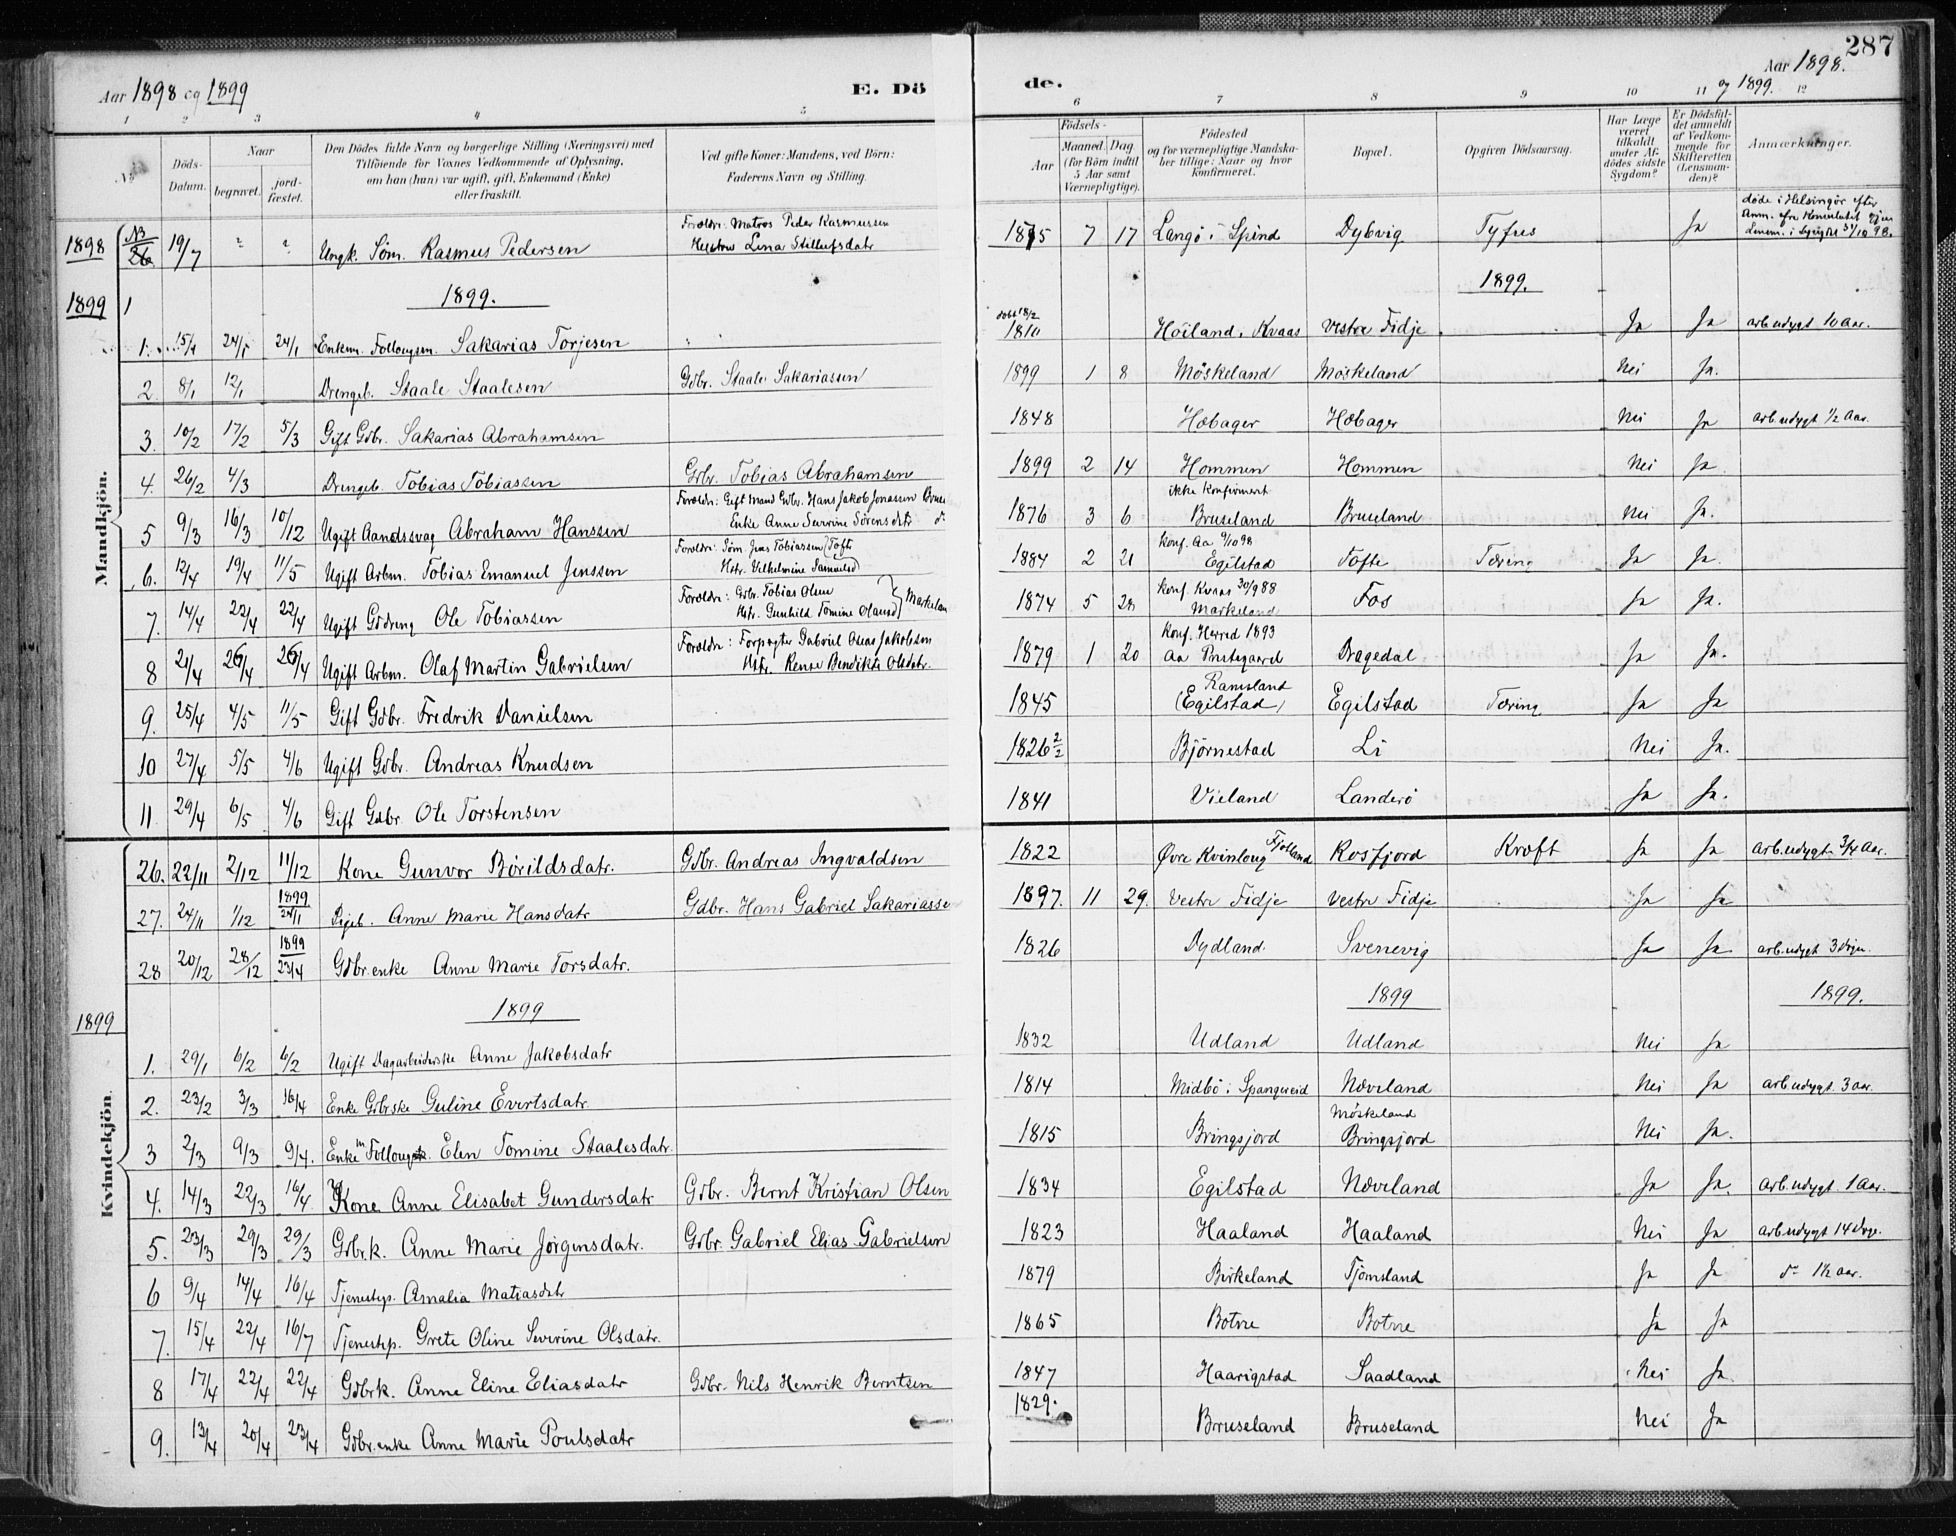 287
Aar 1898 og 1899
E. Dö de.
Aar 1898.
og 1899.
1 2 3 4 5 6 7 8 9 10 11 12
No
Döds-Datum.
Naar
begravet.
jord-fæstet.
Den Dödes fulde Navn og borgerlige Stilling (Næringsvei) med
Tilföiende for Voxnes Vedkommende af Oplysning,
om han (hun) var ugift, gift, Enkemand (Enke)
eller fraskilt.
Ved gifte Koner: Mandens, ved Börn:
Faderens Navn og Stilling.
Födsels-
Aar
Maaned. Dag
(for Börn indtil
5 Aar samt
Værnepligtige).
Födested
og for værnepligtige Mandska-
ber tillige: Naar og hvor
konfirmeret.
Bopæl.
Opgiven Dödsaarsag.
Har Læge
været
tilkaldt
under Af-
dödes sidste
Sygdom?
Er Dödsfal-
det anmeldt
af Vedkom-
mende for
Skifteretten
(Lensman-
den)?
Anmærkninger.
Mandkjön.
1898 NB 26 19/7 " " Ungk. Søm. Rasmus Pedersen Foreldre: Matros Peder Rasmussen 1875 7 17 Langö i Spind Dybvig Tyfus Ja döde i Helsingör efter
Hustru Lina Stillufsdatr Anm. fra Konsulatet
Lensm. i 31/10 98.
1899 1 1899. 1899.
1. 15/1 24/1 24/1 Enkem. Follougsm. Sakarias Torjesen döbt 18/2 1810 Höiland i Kvaas Vestre Fidje Ja Ja arb.udygt 10 Aar.
2. 8/1 12/1 Drengeb. Staale Staalesen Gdbr. Staale Sakariassen 1899 1 8 Möskeland Möskeland Nei Ja.
3. 10/2 17/2 5/3 Gift Gdbr. Sakarias Abrahamsen 1848 Hæbager Hæbager Nei Ja arb.udygt 1/2 Aar.
4. 26/2 4/3 Drengeb. Tobias Tobiassen Gdbr. Tobias Abrahamsen 1899 2 14 Hommen Hommen Nei Ja
5 9/3 16/3 10/12 Ugift Aandssvag Abraham Hanssen Foreldr: Gift Mand Gdbr. Hans Jakob Jonassen 1876 3 6 ikke Konfirmeret Bruseland Bruseland Nei Ja.
Enke Anne Severine Sörensdtr
6. 12/4 19/4 11/5 Ugift Arbm. Tobias Emanuel Jenssen Foreldr: Søm. Jens Tobiassen Tofte 1884 2 21 Konf. Aa 9/10 98 Egilstad Tofte Tæring Ja Ja.
Hstr. Vilhelmine Samuelsd
7. 14/4 22/4 22/4 Ugift Gddreng Ole Tobiassen Foreldr: Gdbr. Tobias Olsen 1874 5 28 Konf. Kvaas 30/9 88 Markeland Fos Ja Ja.
Hstr. Gunhild Tomine Olausd
8 21/4 26/4 26/4 Ugift Arbm. Olaf Martin Gabrielsen Foreldr: Forpagter Gabriel Jakobsen 1879 1 20 Konf. Herred 1893 Aa Prestegaard Dragedal Ja Ja.
Hstr. Bendikte Olsdtr.
9. 25/4 4/5 11/5 Gift Gdbr. Fredrik Danielsen 1845 Ramsland (Egilstad) Egilstad Tæring Ja Ja
10 27/4 5/5 4/6 Ugift Gdbr. Andreas Knudsen 1826 2/2 Björnestad Li Nei Ja.
11 29/4 6/5 4/6 Gift Gdbr. Ole Torstensen 1841 Vieland Landerö Ja Ja.
Kvindekjön.
26. 22/11 2/12 11/12 Kone Gunvor Börildsdatr. Gdbr. Andreas Ingvaldsen 1822 Øvre Kvinloug Fjotland Rosfjord Kræft Ja Ja arb.udygt 3/4 Aar.
27. 24/11 1/12 1899 24/1 Pigeb. Anne Marie Hansdatr Gdbr. Hans Gabriel Sakariasse 1897. 11 29. Vestre Fidje Vestre Fidje Ja Ja
28 20/12 28/12 1899 23/4 Gdbr.enke Anne Marie Torsdatr. 1826 Dydland Svenevig Ja Ja arb.udygt 3
1899 1899 1899 1899.
1. 29/1 6/2 6/2 Ugift Dagarbeiderske Anne Jakobsdatr 1832 Udland Udland Nei Ja
2. 23/2 3/3 16/4 Enke Gdbrske Guline Evertsdatr. 1814 Midbö i Spangereid Næveland Nei Ja arb.udygt. 3 aar.
3 2/3 9/3 9/4. Enke Elen Tomine Staalesdatr. 1815 Bringsjord Möskeland Bringsjord Nei Ja.
4. 14/3 22/3 16/4 Kone Anne Elisabet Gundersdatr Gdbr. Bernt Kristian Olsen 1834 Egilstad Næveland Ja Ja. arb.udygt. 1 Aar.
5. 23/3 29/3 29/3 Gdbr.k. Anne Marie Jörgensdatr. Gdbr. Gabriel Elias Gabrielsen 1823 Haaland Haaland Nei Ja arb.udygt 14
6 9/4 14/4 16/4 Tjenestep. Amalia Matiasdatr 1879 Birkeland Tjomsland Ja Ja d° 1½ aar.
7. 15/4 22/4 16/7 Tjenestep. Grete Oline Severine Olsdatr. 1865 Botne Botne Ja Ja
8 17/4 22/4 22/4 Gdbrk. Anne Eline Eliasdatr Gdbr. Nils Henrik Berntsen 1847 Haarigstad Saadland Nei Ja.
9. 13/4 20/4 23/4 Gdbr.enke Anne Marie Poulsdatr 1829. Bruseland Bruseland Nei Ja